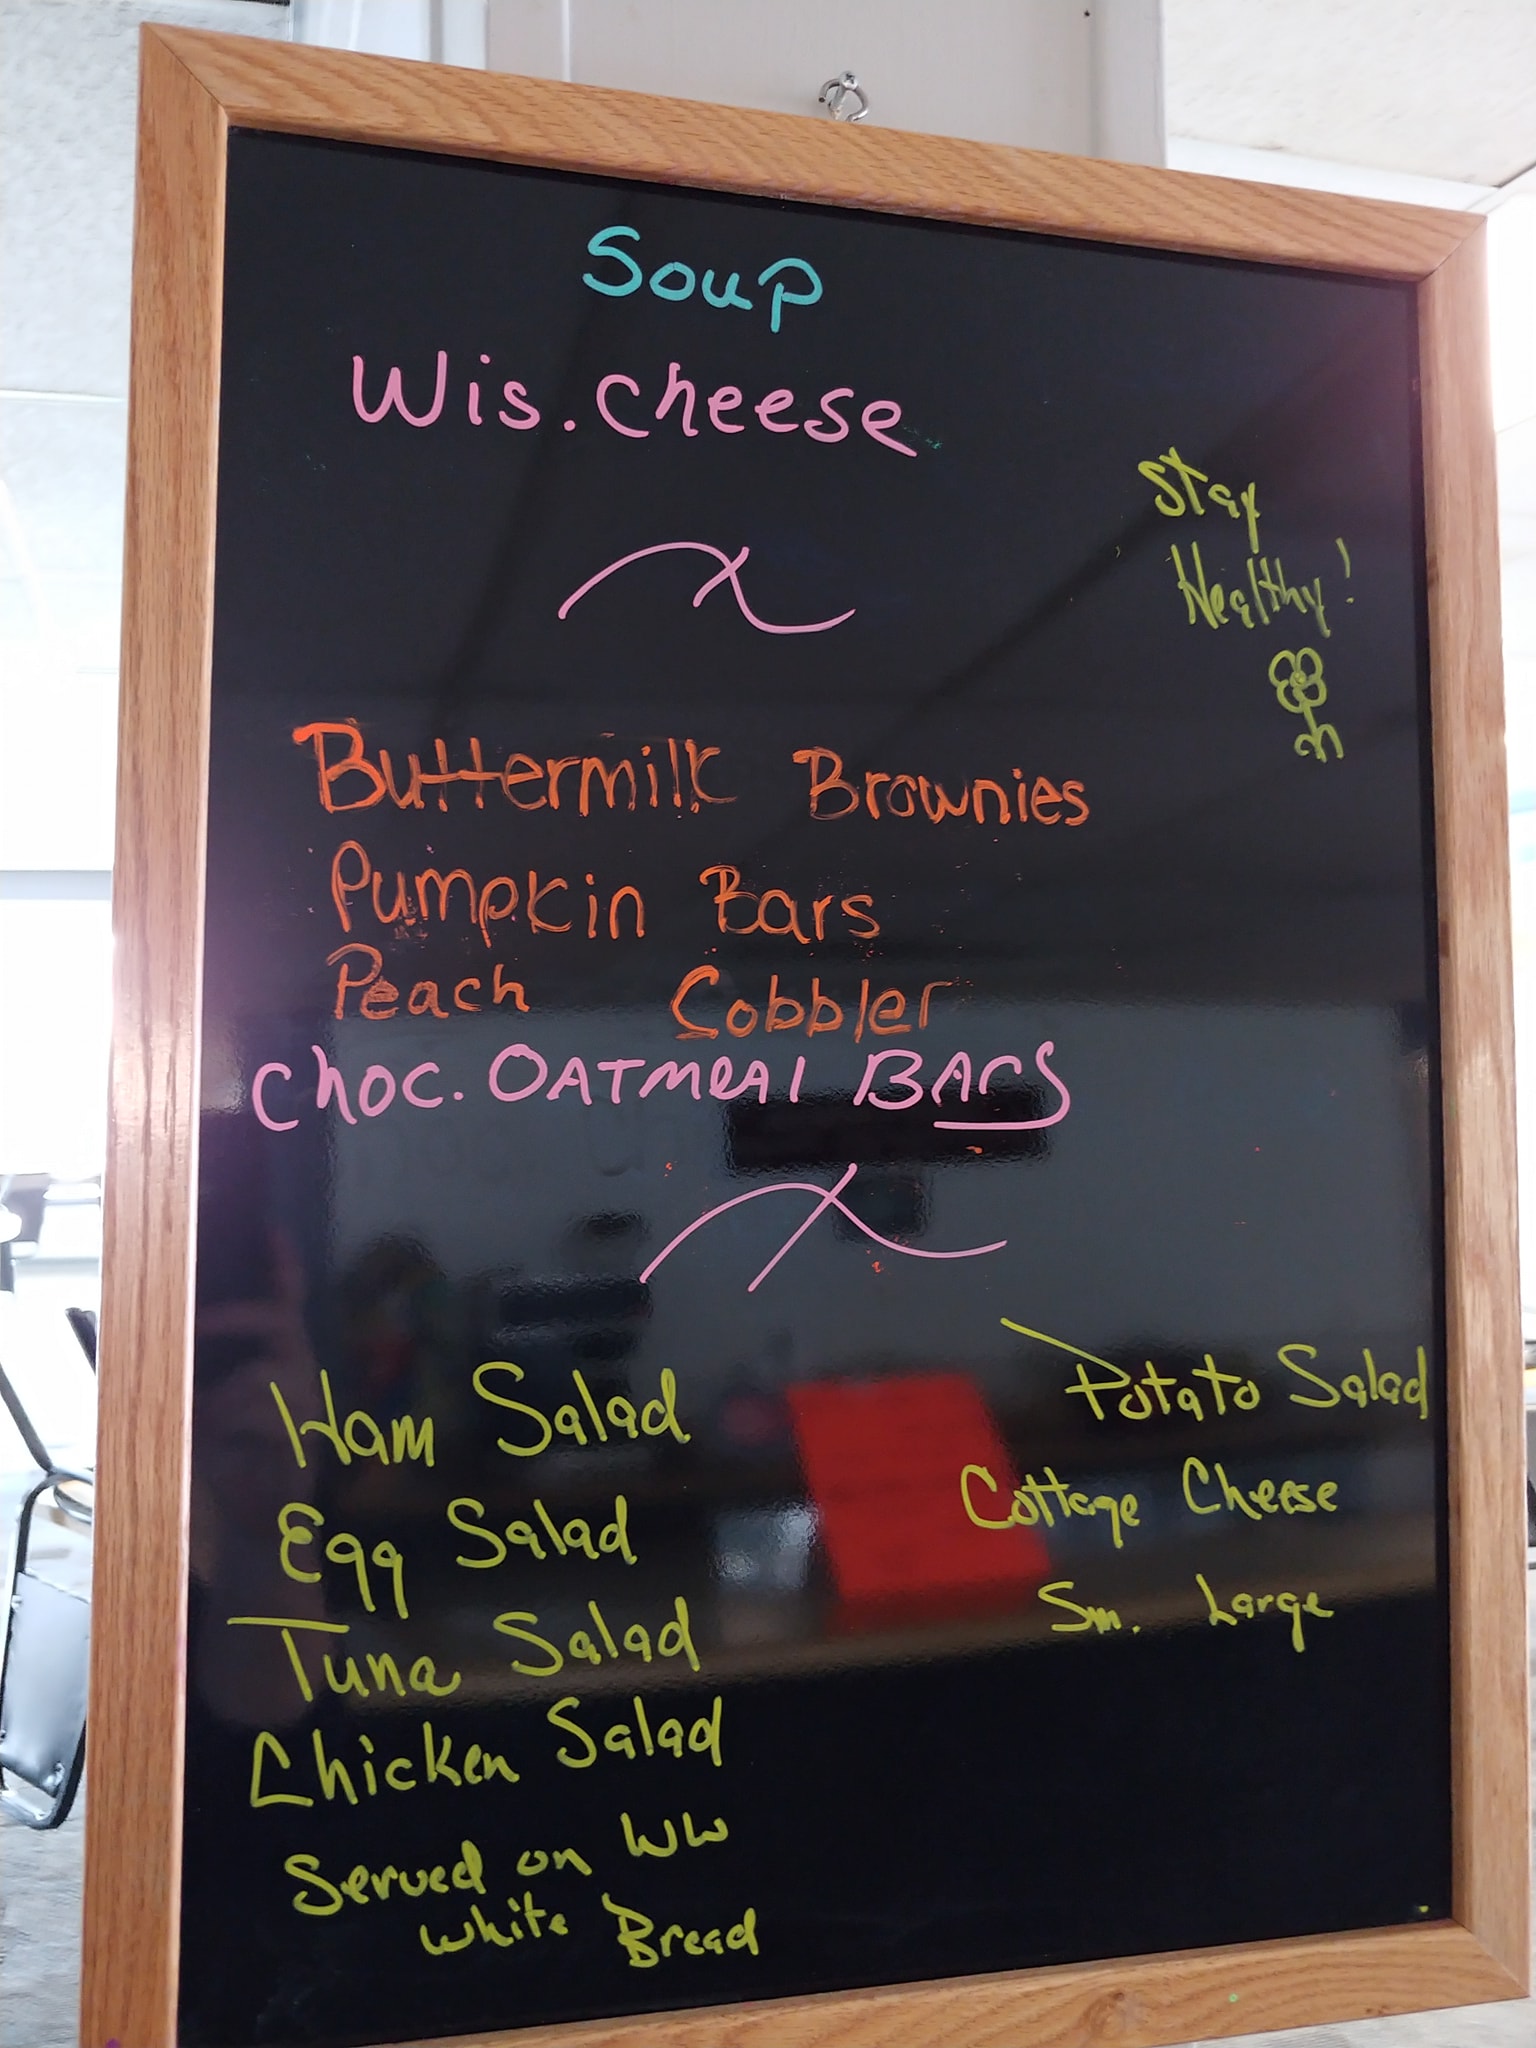 Soup
Wis. cheese
Stay
Healthy!
Buttermilk Brownies
Pumpkin Bars
Peach Cobbler
choc. OATMEAl BArS
Ham Salad
Egg Salad
Tuna Salad
Chicken Salad
Served on WW
white Bread
Potato Salad
Cottage Cheese
Sm. Large